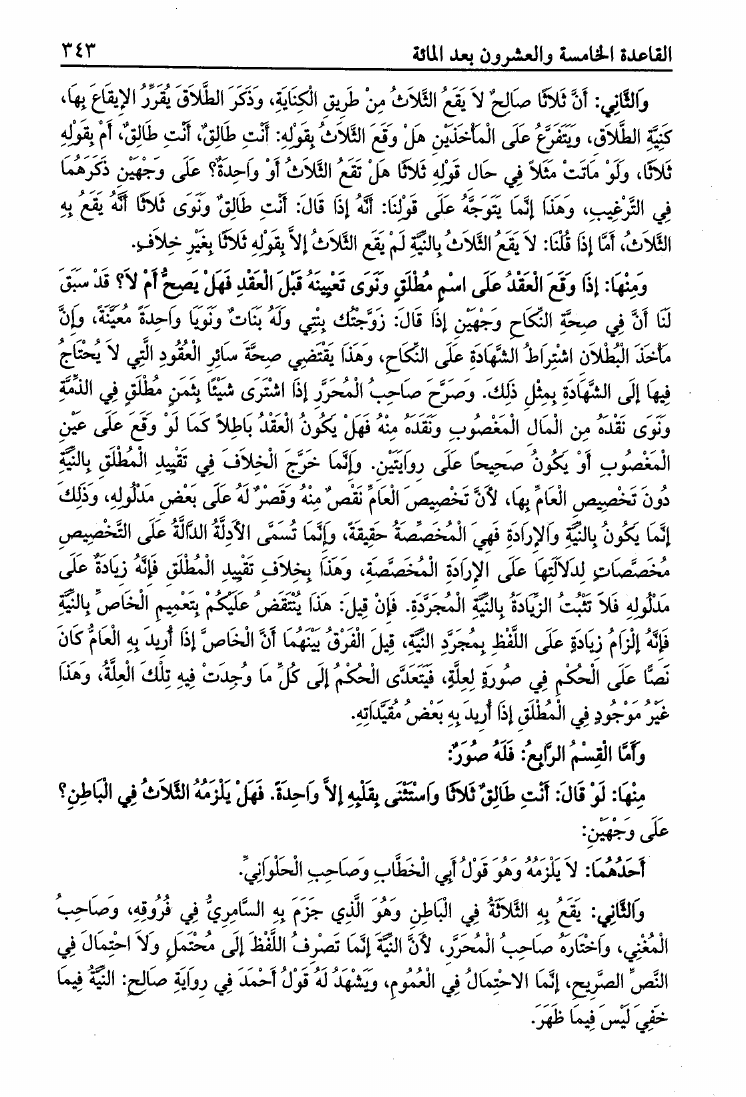 القاعدة الخامسة والعشرون بعد المائة ٣٤٣
وَالثَّانِي: أَنَّ ثَلاَثًا صَالِحٌ لاَ يَقَعُ الثَّلاَثُ مِنْ طَرِيقِ الْكِنَايَةِ، وَذَكَرَ الطَّلاَقَ يُقَرِّرُ الإِيقَاعَ بِهَا،
كَنِيَّةِ الطَّلاَقِ، وَيَتَفَرَّعُ عَلَى الْمَأْخَذَيْنِ هَلْ وَقَعَ الثَّلاَثُ بِقَوْلِهِ: أَنْتِ طَالِقٌ، أَنْتِ طَالِقٌ، أَمْ بِقَوْلِهِ
ثَلاَثًا، وَلَوْ مَاتَتْ مَثَلاً فِي حَالِ قَوْلِهِ ثَلاَثًا هَلْ تَقَعُ الثَّلاَثُ أَوْ وَاحِدَةٌ؟ عَلَى وَجْهَيْنِ ذَكَرَهُمَا
فِي التَّرْغِيبِ، وَهَذَا إِنَّمَا يَتَوَجَّهُ عَلَى قَوْلِنَا: أَنَّهُ إِذَا قَالَ: أَنْتِ طَالِقٌ وَنَوَى ثَلاَثًا أَنَّهُ يَقَعُ بِهِ
الثَّلاَثُ، أَمَّا إِذَا قُلْنَا: لاَ يَقَعُ الثَّلاَثُ بِالنِّيَّةِ لَمْ يَقَعِ الثَّلاَثُ إِلاَّ بِقَوْلِهِ ثَلاَثًا بِغَيْرِ خِلاَفٍ.
وَمِنْهَا: إِذَا وَقَعَ الْعَقْدُ عَلَى اسْمٍ مُطْلَقٍ وَنَوَى تَعْيِينَهُ قَبْلَ الْعَقْدِ فَهَلْ يَصِحُّ أَمْ لاَ؟ قَدْ سَبَقَ
لَنَا أَنَّ فِي صِحَّةِ النِّكَاحِ وَجْهَيْنِ إِذَا قَالَ: زَوَّجْتُكَ بِنْتِي وَلَهُ بَنَاتٌ وَنَوَيَا وَاحِدَةً مُعَيَّنَةً، وَإِنَّ
مَأْخَذَ الْبُطْلاَنِ اشْتِرَاطُ الشَّهَادَةِ عَلَى النِّكَاحِ، وَهَذَا يَقْتَضِي صِحَّةَ سَائِرِ الْعُقُودِ الَّتِي لاَ يُحْتَاجُ
فِيهَا إِلَى الشَّهَادَةِ بِمِثْلِ ذَلِكَ. وَصَرَّحَ صَاحِبُ الْمُحَرَّرِ إِذَا اشْتَرَى شَيْئًا بِثَمَنٍ مُطْلَقٍ فِي الذِّمَّةِ
وَنَوَى نَقْدَهُ مِنَ الْمَالِ الْمَغْصُوبِ وَنَقَدَهُ مِنْهُ فَهَلْ يَكُونُ الْعَقْدُ بَاطِلاً كَمَا لَوْ وَقَعَ عَلَى عَيْنِ
الْمَغْصُوبِ أَوْ يَكُونُ صَحِيحًا عَلَى رِوَايَتَيْنِ. وَإِنَّمَا خَرَّجَ الْخِلاَفَ فِي تَقْيِيدِ الْمُطْلَقِ بِالنِّيَّةِ
دُونَ تَخْصِيصِ الْعَامِّ بِهَا، لأَنَّ تَخْصِيصَ الْعَامِّ نَقْصٌ مِنْهُ وَقَصْرٌ لَهُ عَلَى بَعْضِ مَدْلُولِهِ، وَذَلِكَ
إِنَّمَا يَكُونُ بِالنِّيَّةِ وَالإِرَادَةِ فَهِيَ الْمُخَصِّصَةُ حَقِيقَةً، وَإِنَّمَا تُسَمَّى الأَدِلَّةُ الدَّالَّةُ عَلَى التَّخْصِيصِ
مُخَصِّصَاتٍ لِدَلاَلَتِهَا عَلَى الإِرَادَةِ الْمُخَصِّصَةِ، وَهَذَا بِخِلاَفِ تَقْيِيدِ الْمُطْلَقِ فَإِنَّهُ زِيَادَةٌ عَلَى
مَدْلُولِهِ فَلاَ تَثْبُتُ الزِّيَادَةُ بِالنِّيَّةِ الْمُجَرَّدَةِ. فَإِنْ قِيلَ: هَذَا يُنْتَقَضُ عَلَيْكُمْ بِتَعْمِيمِ الْخَاصِّ بِالنِّيَّةِ
فَإِنَّهُ إِلْزَامُ زِيَادَةٍ عَلَى اللَّفْظِ بِمُجَرَّدِ النِّيَّةِ، قِيلَ الْفَرْقُ بَيْنَهُمَا أَنَّ الْخَاصَّ إِذَا أُرِيدَ بِهِ الْعَامُّ كَانَ
نَصًّا عَلَى الْحُكْمِ فِي صُورَةٍ لِعِلَّةٍ، فَيَتَعَدَّى الْحُكْمُ إِلَى كُلِّ مَا وُجِدَتْ فِيهِ تِلْكَ الْعِلَّةُ، وَهَذَا
غَيْرُ مَوْجُودٍ فِي الْمُطْلَقِ إِذَا أُرِيدَ بِهِ بَعْضُ مُقَيَّدَاتِهِ.
وَأَمَّا الْقِسْمُ الرَّابِعُ: فَلَهُ صُوَرٌ:
مِنْهَا: لَوْ قَالَ: أَنْتِ طَالِقٌ ثَلاَثًا وَاسْتَثْنَى بِقَلْبِهِ إِلاَّ وَاحِدَةً. فَهَلْ يَلْزَمُهُ الثَّلاَثُ فِي الْبَاطِنِ؟
عَلَى وَجْهَيْنِ:
أَحَدُهُمَا: لاَ يَلْزَمُهُ وَهُوَ قَوْلُ أَبِي الْخَطَّابِ وَصَاحِبِ الْحَلْوَانِيِّ.
وَالثَّانِي: يَقَعُ بِهِ الثَّلاَثَةُ فِي الْبَاطِنِ وَهُوَ الَّذِي جَزَمَ بِهِ السَّامِرِيُّ فِي فُرُوقِهِ، وَصَاحِبُ
الْمُغْنِي، وَاخْتَارَهُ صَاحِبُ الْمُحَرَّرِ، لأَنَّ النِّيَّةَ إِنَّمَا تَصْرِفُ اللَّفْظَ إِلَى مُحْتَمَلٍ وَلاَ احْتِمَالَ فِي
النَّصِّ الصَّرِيحِ، إِنَّمَا الاحْتِمَالُ فِي الْعُمُومِ، وَيَشْهَدُ لَهُ قَوْلُ أَحْمَدَ فِي رِوَايَةِ صَالِحٍ: النِّيَّةُ فِيمَا
خَفِيَ لَيْسَ فِيمَا ظَهَرَ.